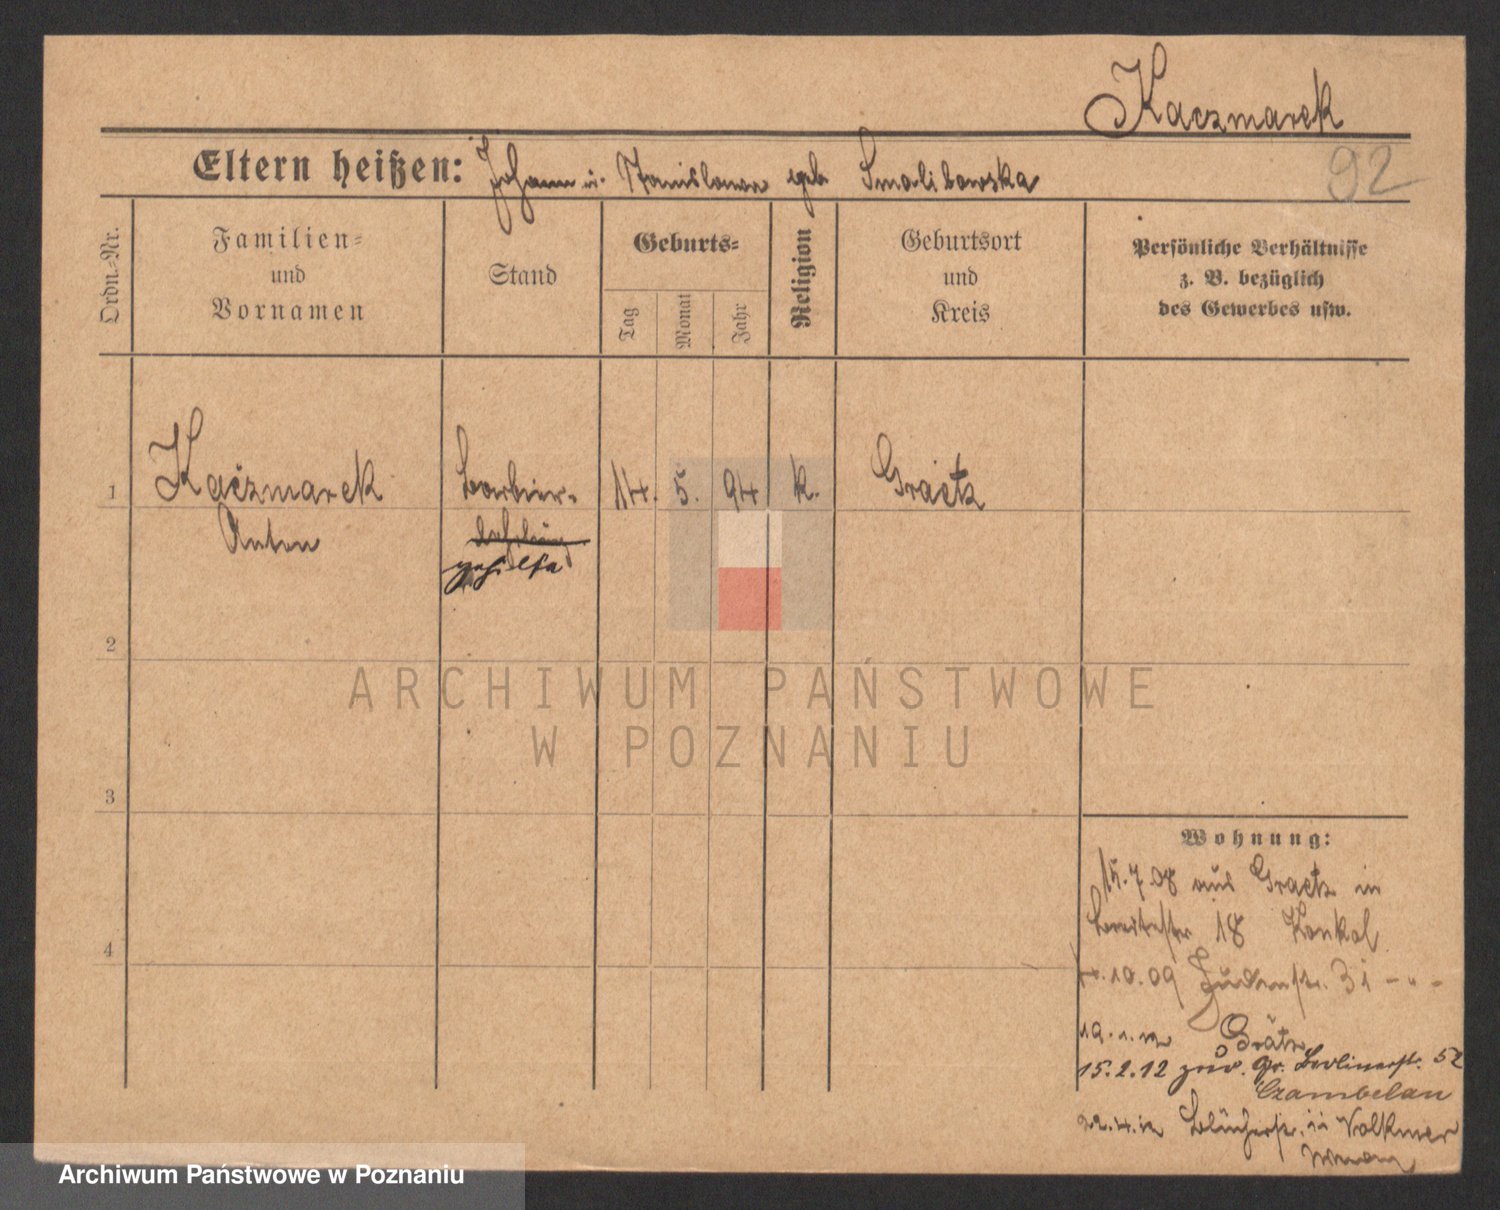 Kaczmarek
Eltern heißen: Johann u. Stanislawa geb Smalibowska
92
Ordn.-Nr.
Familien-
und
Vornamen
Stand
Geburts-
Tag
Monat
Jahr
Religion
Geburtsort
und
Kreis
Persönliche Verhältnisse
z. B. bezüglich
des Gewerbes usw.
1
Kaczmarek
Anton
Barbier-
lehrling
gehilfe
14. 5. 94 k. Graetz
2
3
4
Wohnung:
15.7.08 aus Graetz in
18 Konkol
10.09 Judenstr. 31 - " -
19.1.12 Grätz
15.2.12 zur. Gr. Berlinerstr. 52
Czambelan
22.4.12 Blücherstr. 11 Volkmer
ARCHIWUM PAŃSTWOWE
W POZNANIU
Archiwum Państwowe w Poznaniu